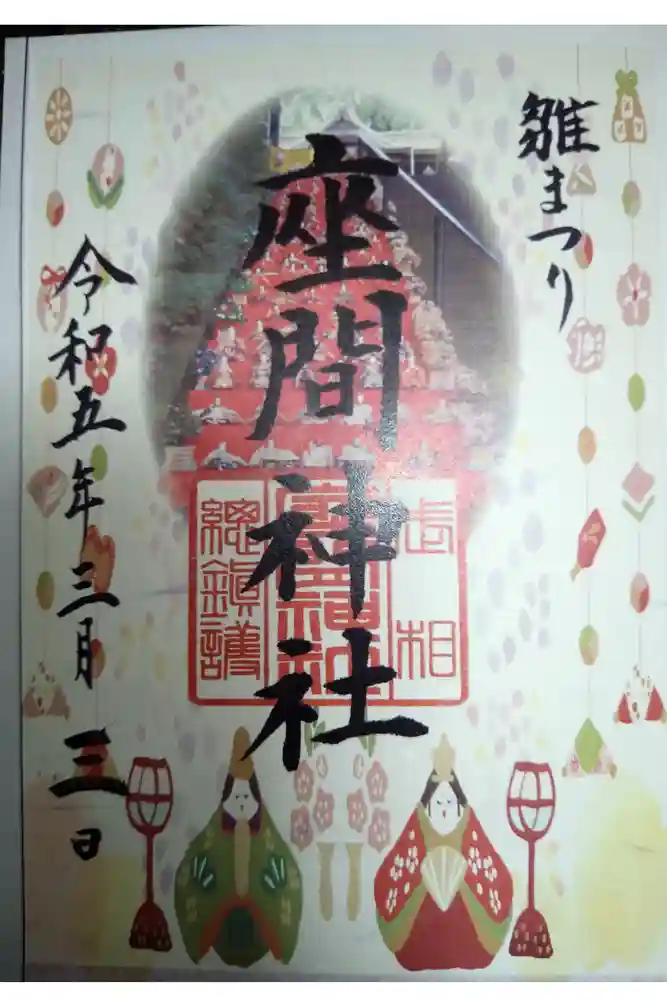 雛まつり
座間神社
相武
座間神社
総鎮護
令和五年三月三日